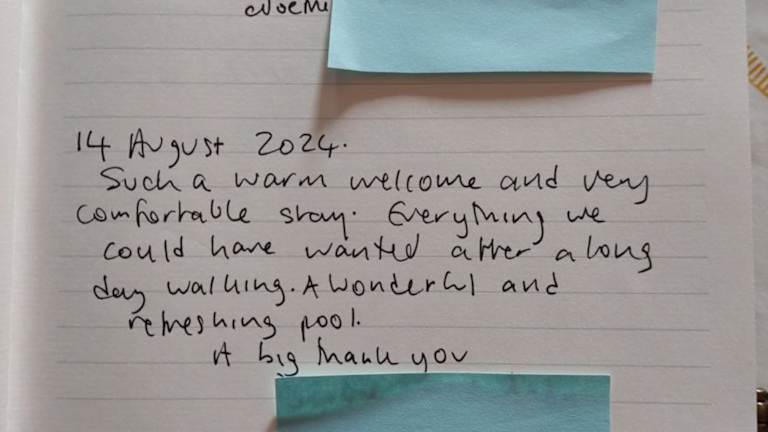 14 August 2024.
Such a warm welcome and very
comfortable stay. Everything we
could have wanted after a long
day walking. A wonderful and
refreshing pool.
A big thank you